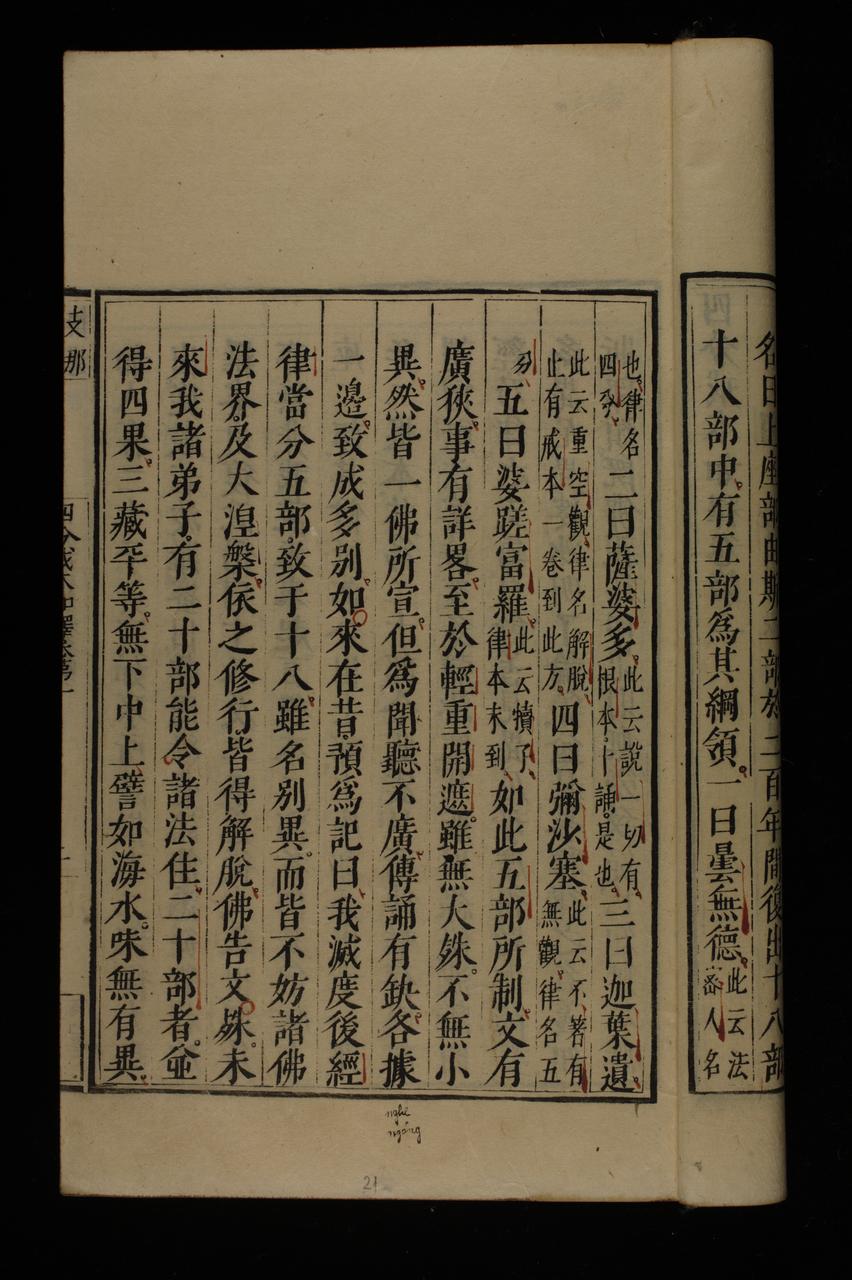 名曰上座部由斯二部於二百年間復出十八部
十八部中有五部爲其綱領一曰曇無德此云法密人名
也律名四分二曰薩婆多此云說一切有根本十誦是也三曰迦葉遺
此云重空觀律名解脫止有戒本一卷到此方四曰彌沙塞此云不著有無觀律名五
分五曰婆蹉富羅此云犢子律本未到如此五部所制文有
廣狹事有詳畧至於輕重開遮雖無大殊不無小
異然皆一佛所宣但爲聞聽不廣傳誦有缺各據
一邊致成多別如來在昔預爲記曰我滅度後經
律當分五部致于十八雖名別異而皆不妨諸佛
法界及大湼槃依之修行皆得解脫佛告文殊未
來我諸弟子有二十部能令諸法住二十部者竝
得四果三藏平等無下中上譬如海水味無有異
支那
四分戒本如釋卷第一
nghe
ngóng
21